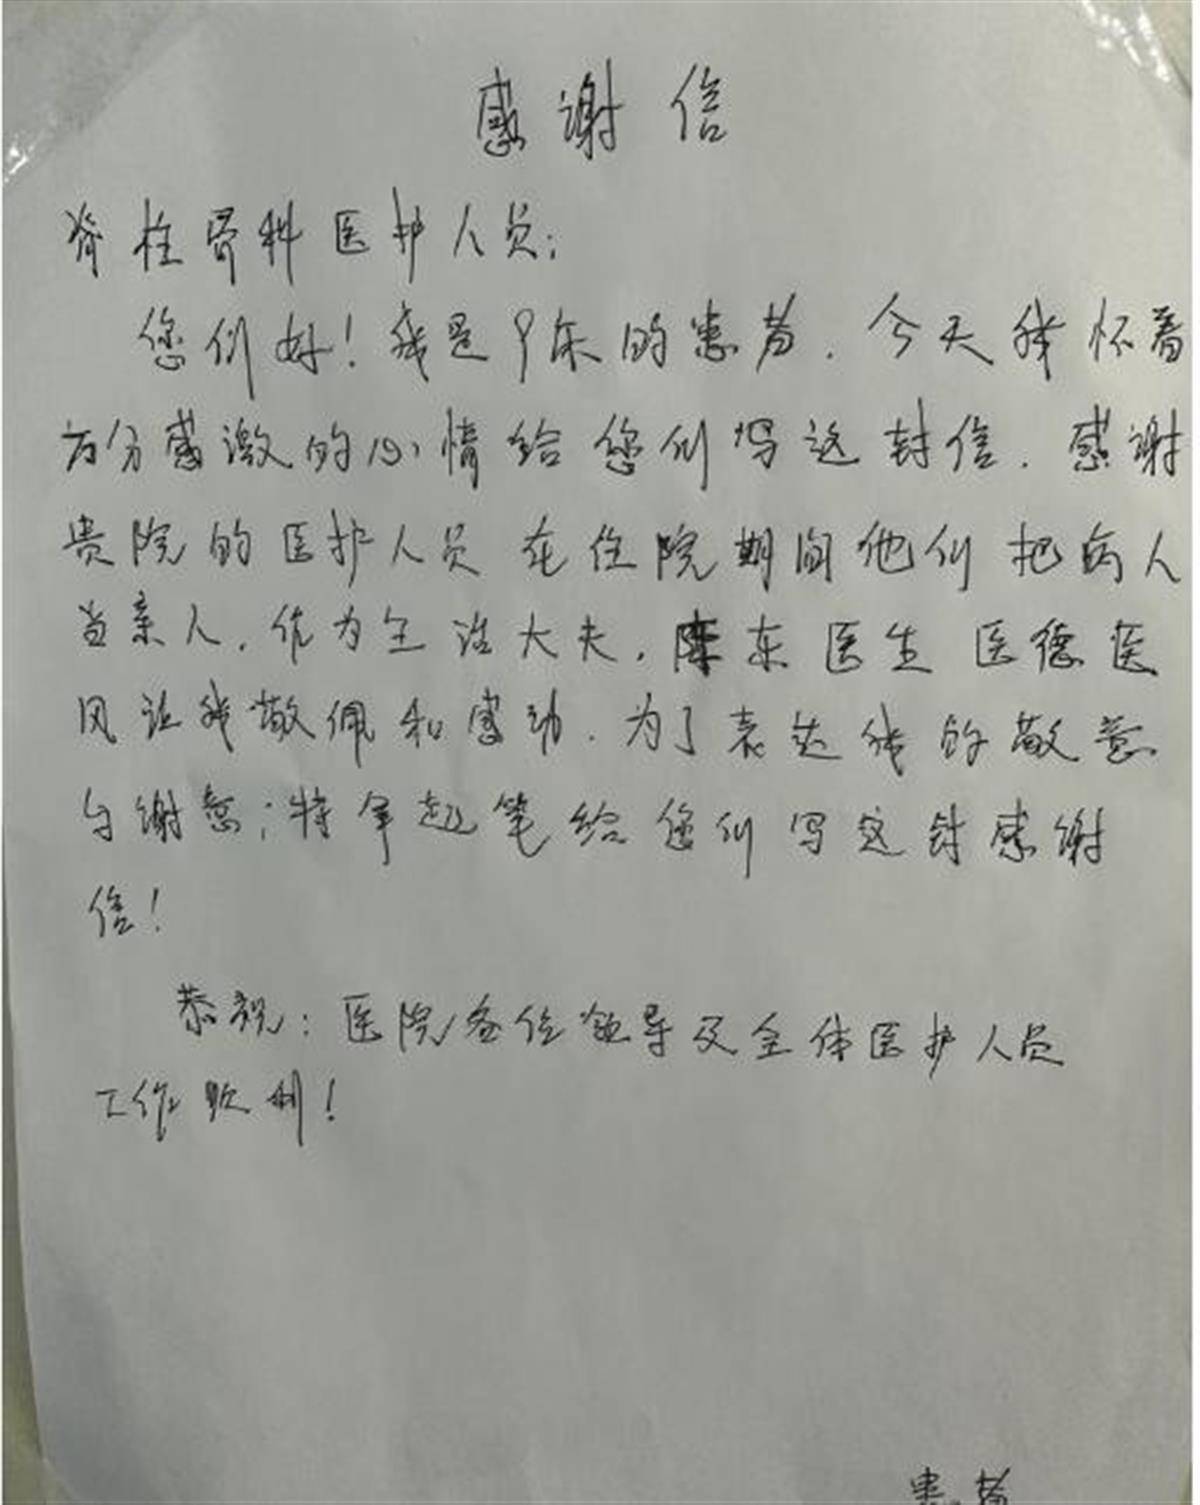 感谢信
脊柱骨科医护人员:
您们好!我是9床的患者.今天我怀着
万分感激的心情给您们写这封信.感谢
贵院的医护人员在住院期间他们把病人
当亲人.作为主治大夫.陈东医生医德医
风让我敬佩和感动.为了表达我的敬意
与谢意;特拿起笔给您们写这封感谢
信!
恭祝:医院各位领导及全体医护人员
工作顺利!
患者